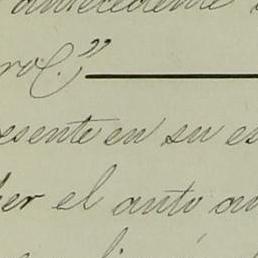 antecedente
ro C.”
esente en su es
er el auto an